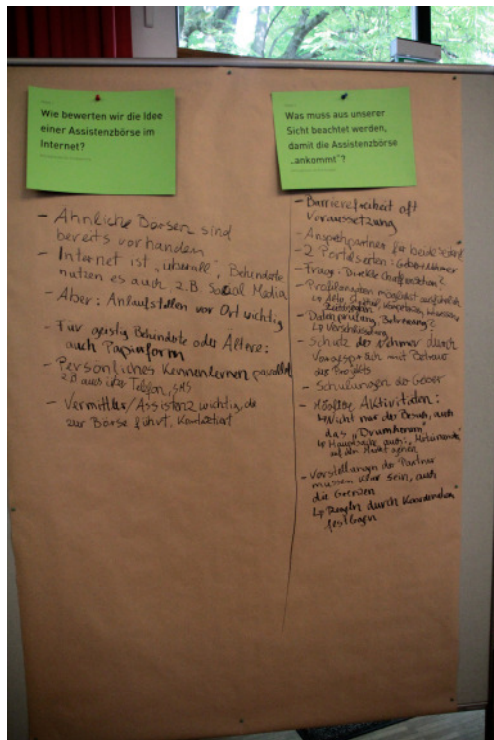 Wie bewerten wir die Idee
einer Assistenzbörse im
Internet?
- Ähnliche Börsen sind
bereits vorhanden
- Internet ist „überall", Behinderte
nutzen es auch, z.B. Social Media
- Aber: Anlaufstellen vor Ort wichtig
- Für geistig Behinderte oder Ältere:
auch Papierform
- Persönliches Kennenlernen parallel
z.B. auch über Telefon, SMS
- Vermittler/Assistenz wichtig, die
zur Börse führt, kontaktiert
Was muss aus unserer
Sicht beachtet werden,
damit die Assistenzbörse
„ankommt"?
- Barrierefreiheit oft
Voraussetzung
- Ansprechpartner für beide
- 2 Portalseiten: Geber + Nehmer
- Frage: Direkte
- Profilangaben möglichst ausführlich
- Datenprüfung, Betreuung?
↳ Verschlüsselung
- Schutz der Nehmer durch
Vorgespräch mit Betreuer
des Projekts
- Schulungen der Geber
- Mögliche Aktivitäten:
↳ Nicht nur der Besuch, auch
das „Drumherum"
auf den Markt gehen
- Vorstellungen der Partner
müssen klar sein, auch
die Grenzen
↳ Regeln durch Koordination
festlegen